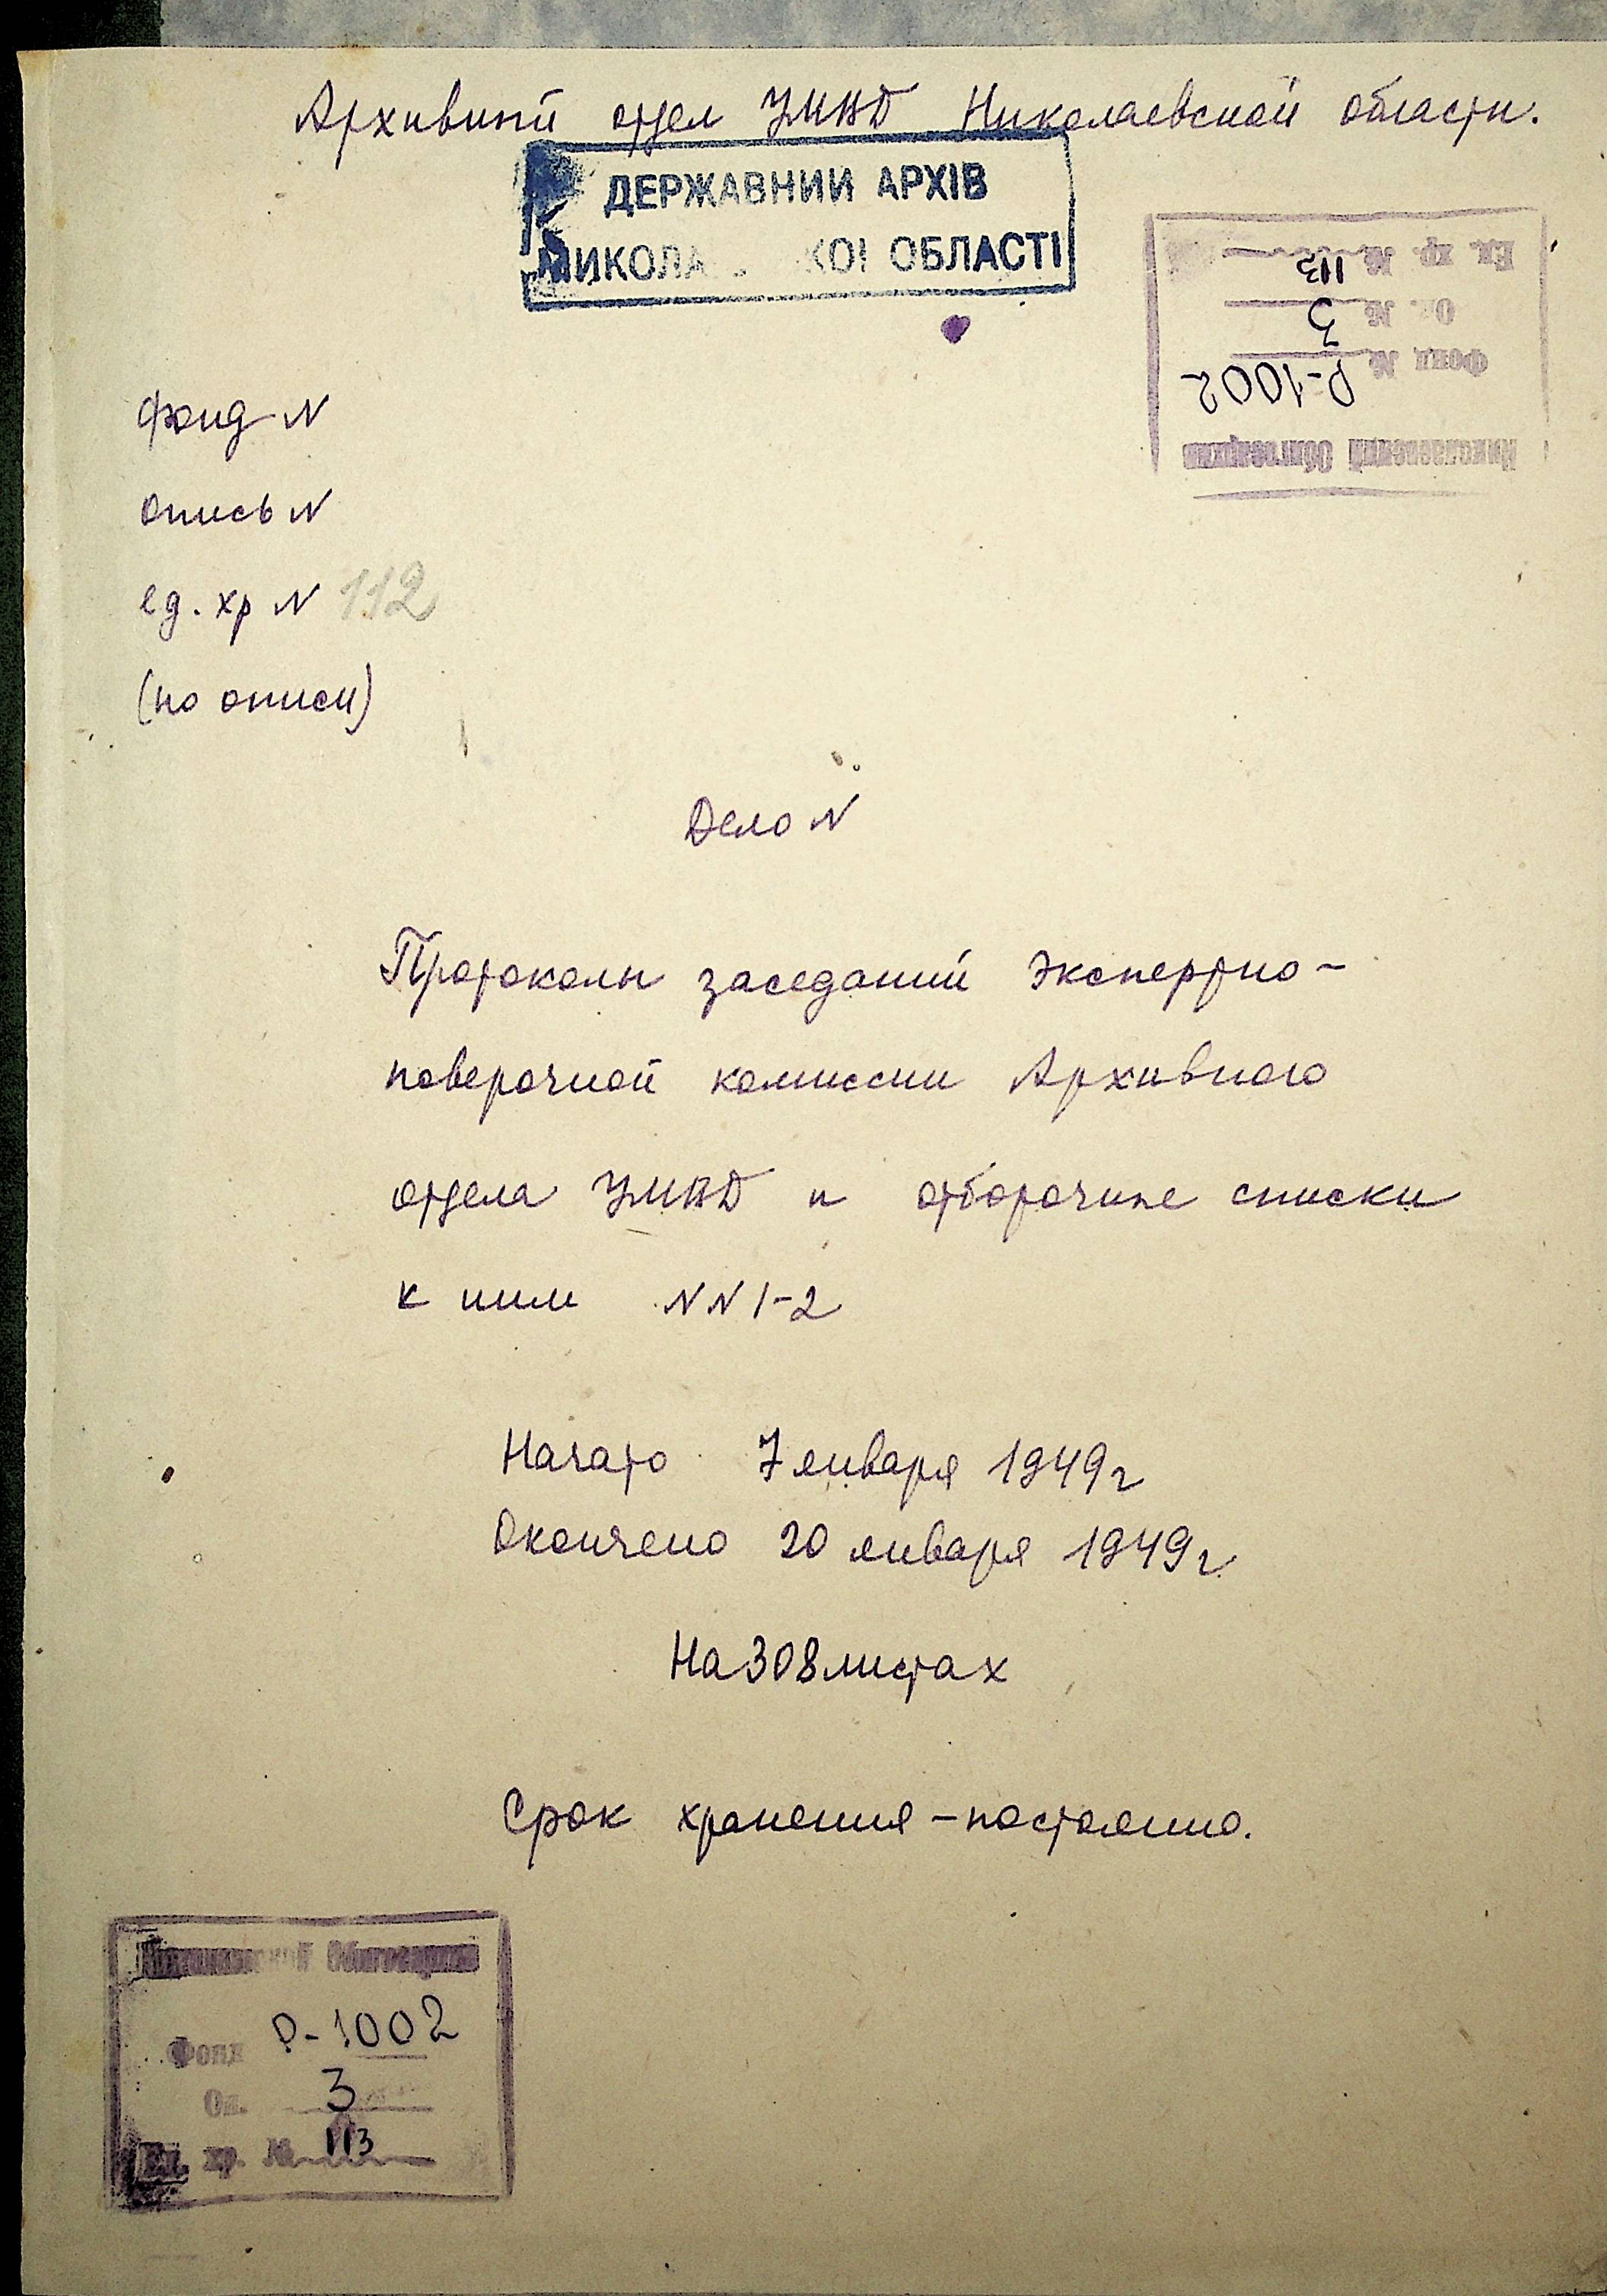 Архивный отдел УМВД Николаевской области.
ДЕРЖАВНИЙ АРХІВ
МИКОЛА КОЇ ОБЛАСТІ
Николаевский Облгосархив
Фонд № Р-1002
Оп. № 3
Ед. хр. № 113
Фонд N
опись N
ед. хр N 112
(по описи)
Дело N
Протоколы заседаний экспертно-
поверочной комиссии Архивного
отдела УМВД и отборочные списки
к ним NN 1-2
Начато 7 января 1949 г
Окончено 20 января 1949 г.
На 308 листах
Срок хранения - постоянно.
Николаевский Облгосархив
Фонд Р-1002
Оп. 3
Ед. хр. № 113